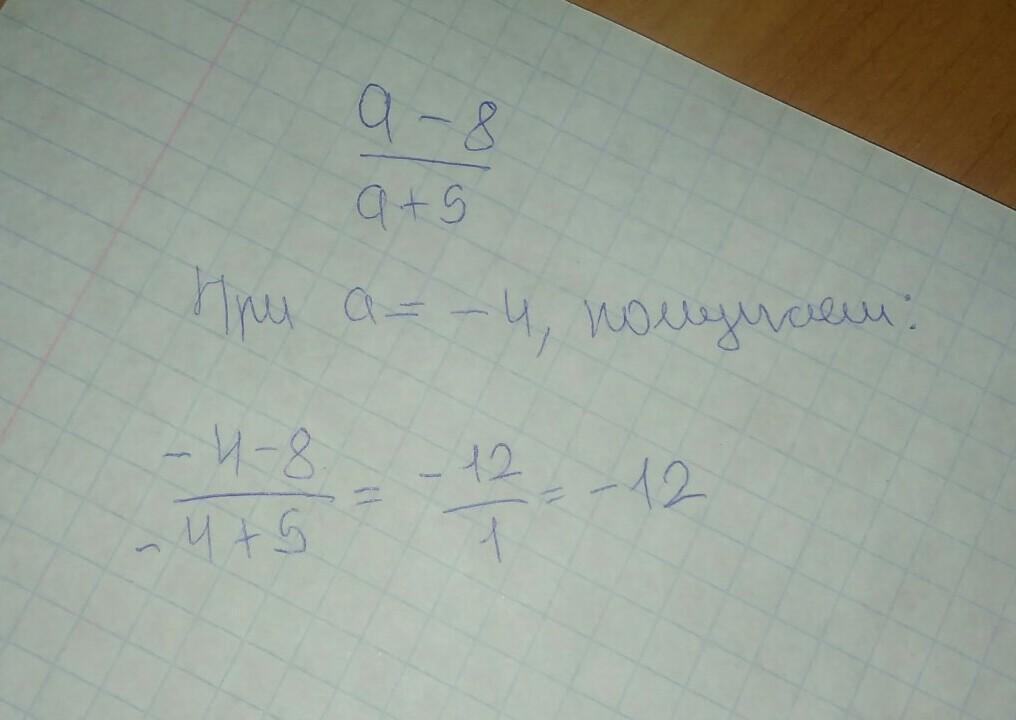 a - 8
a + 5
При a = -4, получаем:
-4-8 / -4+5 = -12 / 1 = -12